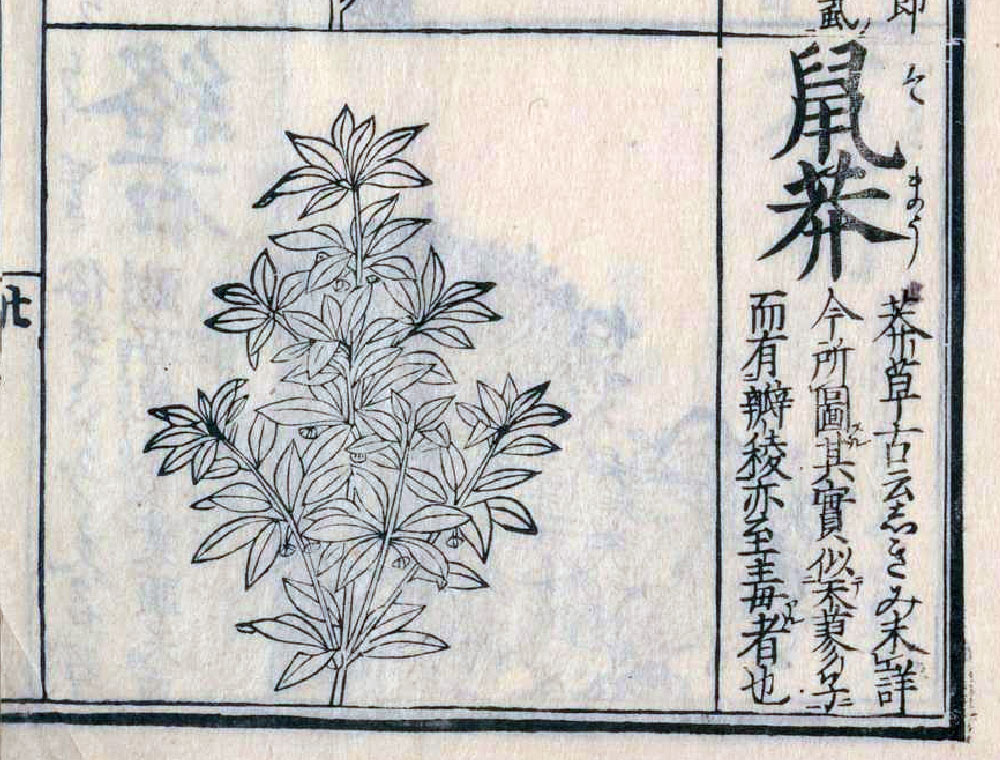 鼡莽
そ まのう
莽草古云志きみ未詳
今所圖其實似天蓼子
而有瓣稜亦至毒者也